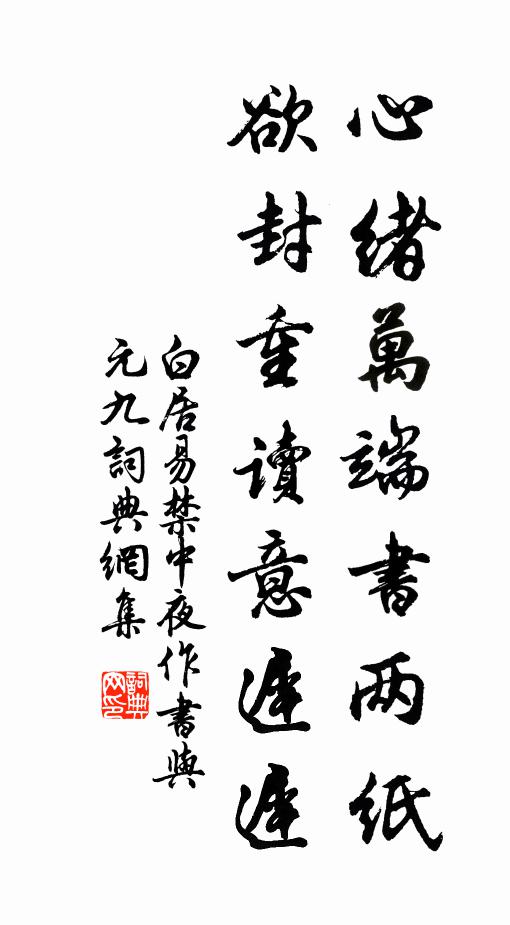 心緒萬端書两紙
欲封重读意遲遲
白居易禁中夜作書與
元九詞典網集
詞典
网印